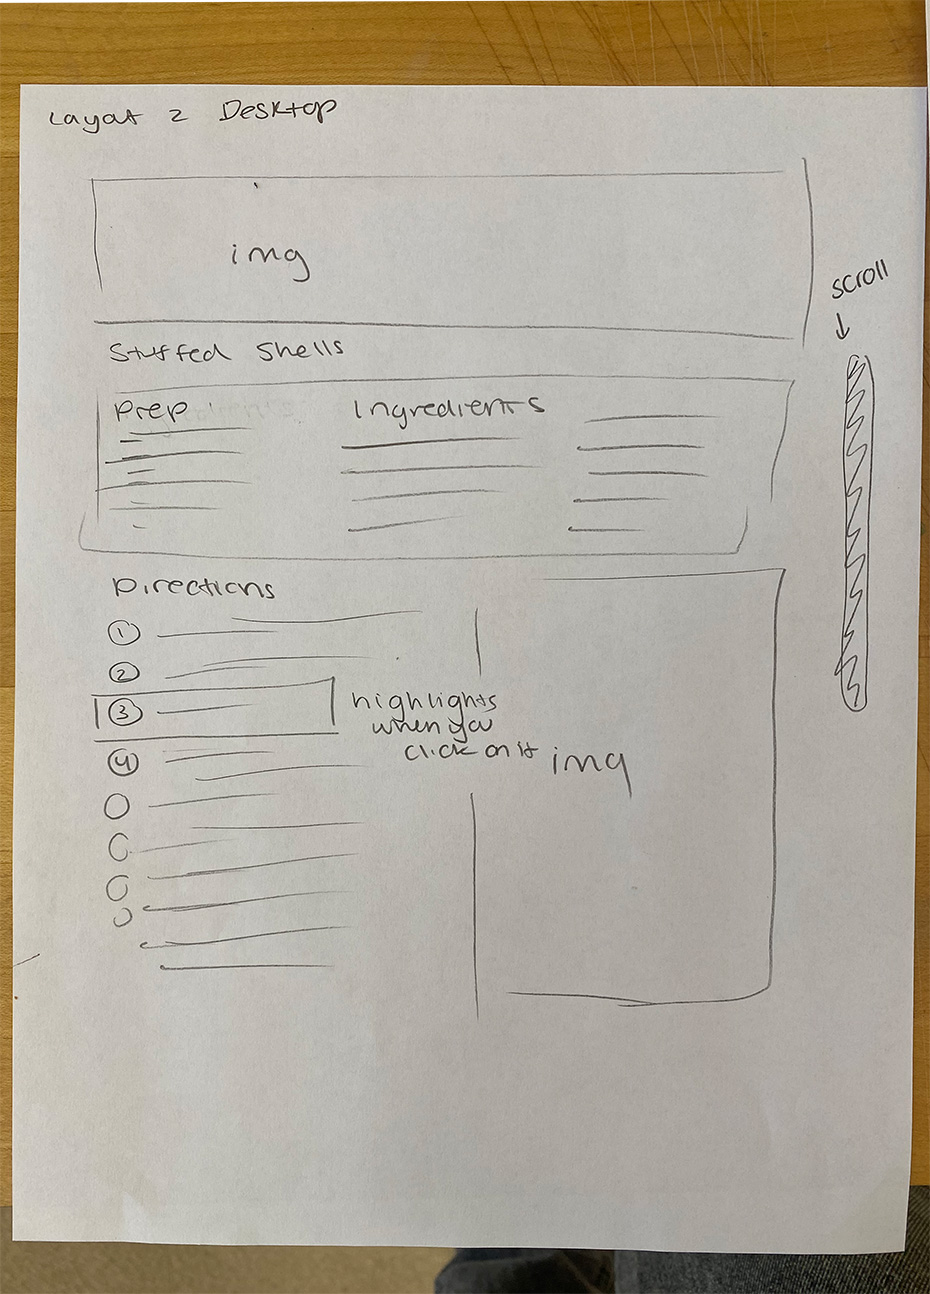 Layout 2 Desktop
img
scroll
Stuffed Shells
Prep
Ingredients
Directions
1
2
3
highlights
when you
click on it
4
img